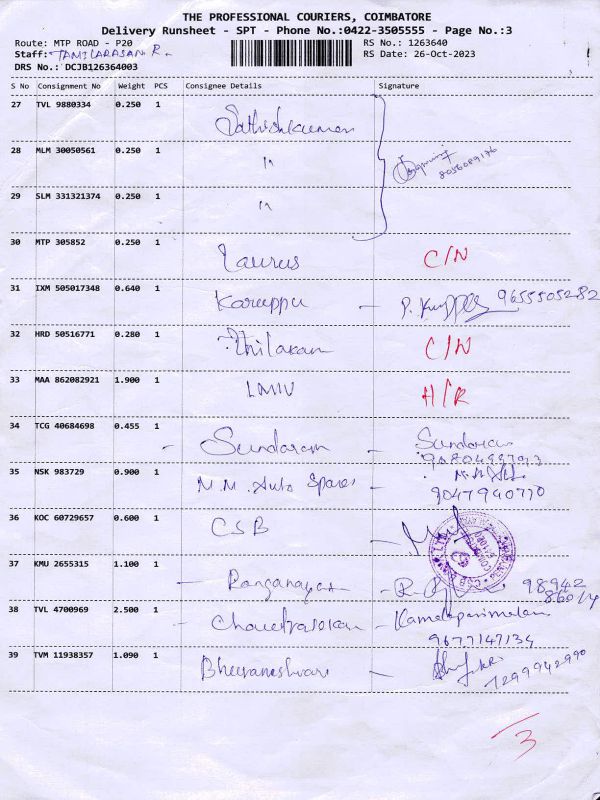 THE PROFESSIONAL COURIERS, COIMBATORE
Delivery Runsheet - SPT - Phone No.:0422-3505555 - Page No.:3
Route: MTP ROAD - P20 RS No.: 1263640
Staff: TAMILARASAN R. RS Date: 26-Oct-2023
DRS No.: DCJB126364003
S No Consignment No Weight PCS Consignee Details Signature
27 TVL 9880334 0.250 1 Sathishkumar
28 MLM 30050561 0.250 1 "
8056089176
29 SLM 331321374 0.250 1 "
30 MTP 305852 0.250 1 Taurus C/N
31 IXM 505017348 0.640 1 Karuppu - P. 9655505282
32 HRD 50516771 0.280 1 Thilakan C/N
33 MAA 862082921 1.900 1 LMW H/R
34 TCG 40684698 0.455 1 - Sundaram - Sundaram
35 NSK 983729 0.900 1 M.M. Auto Spares -
9047940770
36 KOC 60729657 0.600 1 CSB -
37 KMU 2655315 1.100 1 - Ranganayagi - 98942
38 TVL 4700969 2.500 1 - Chandrasekan - Kamalaparimalam
9677147134
39 TVM 11938357 1.090 1 Bhuvaneshwari -
7299942990
3